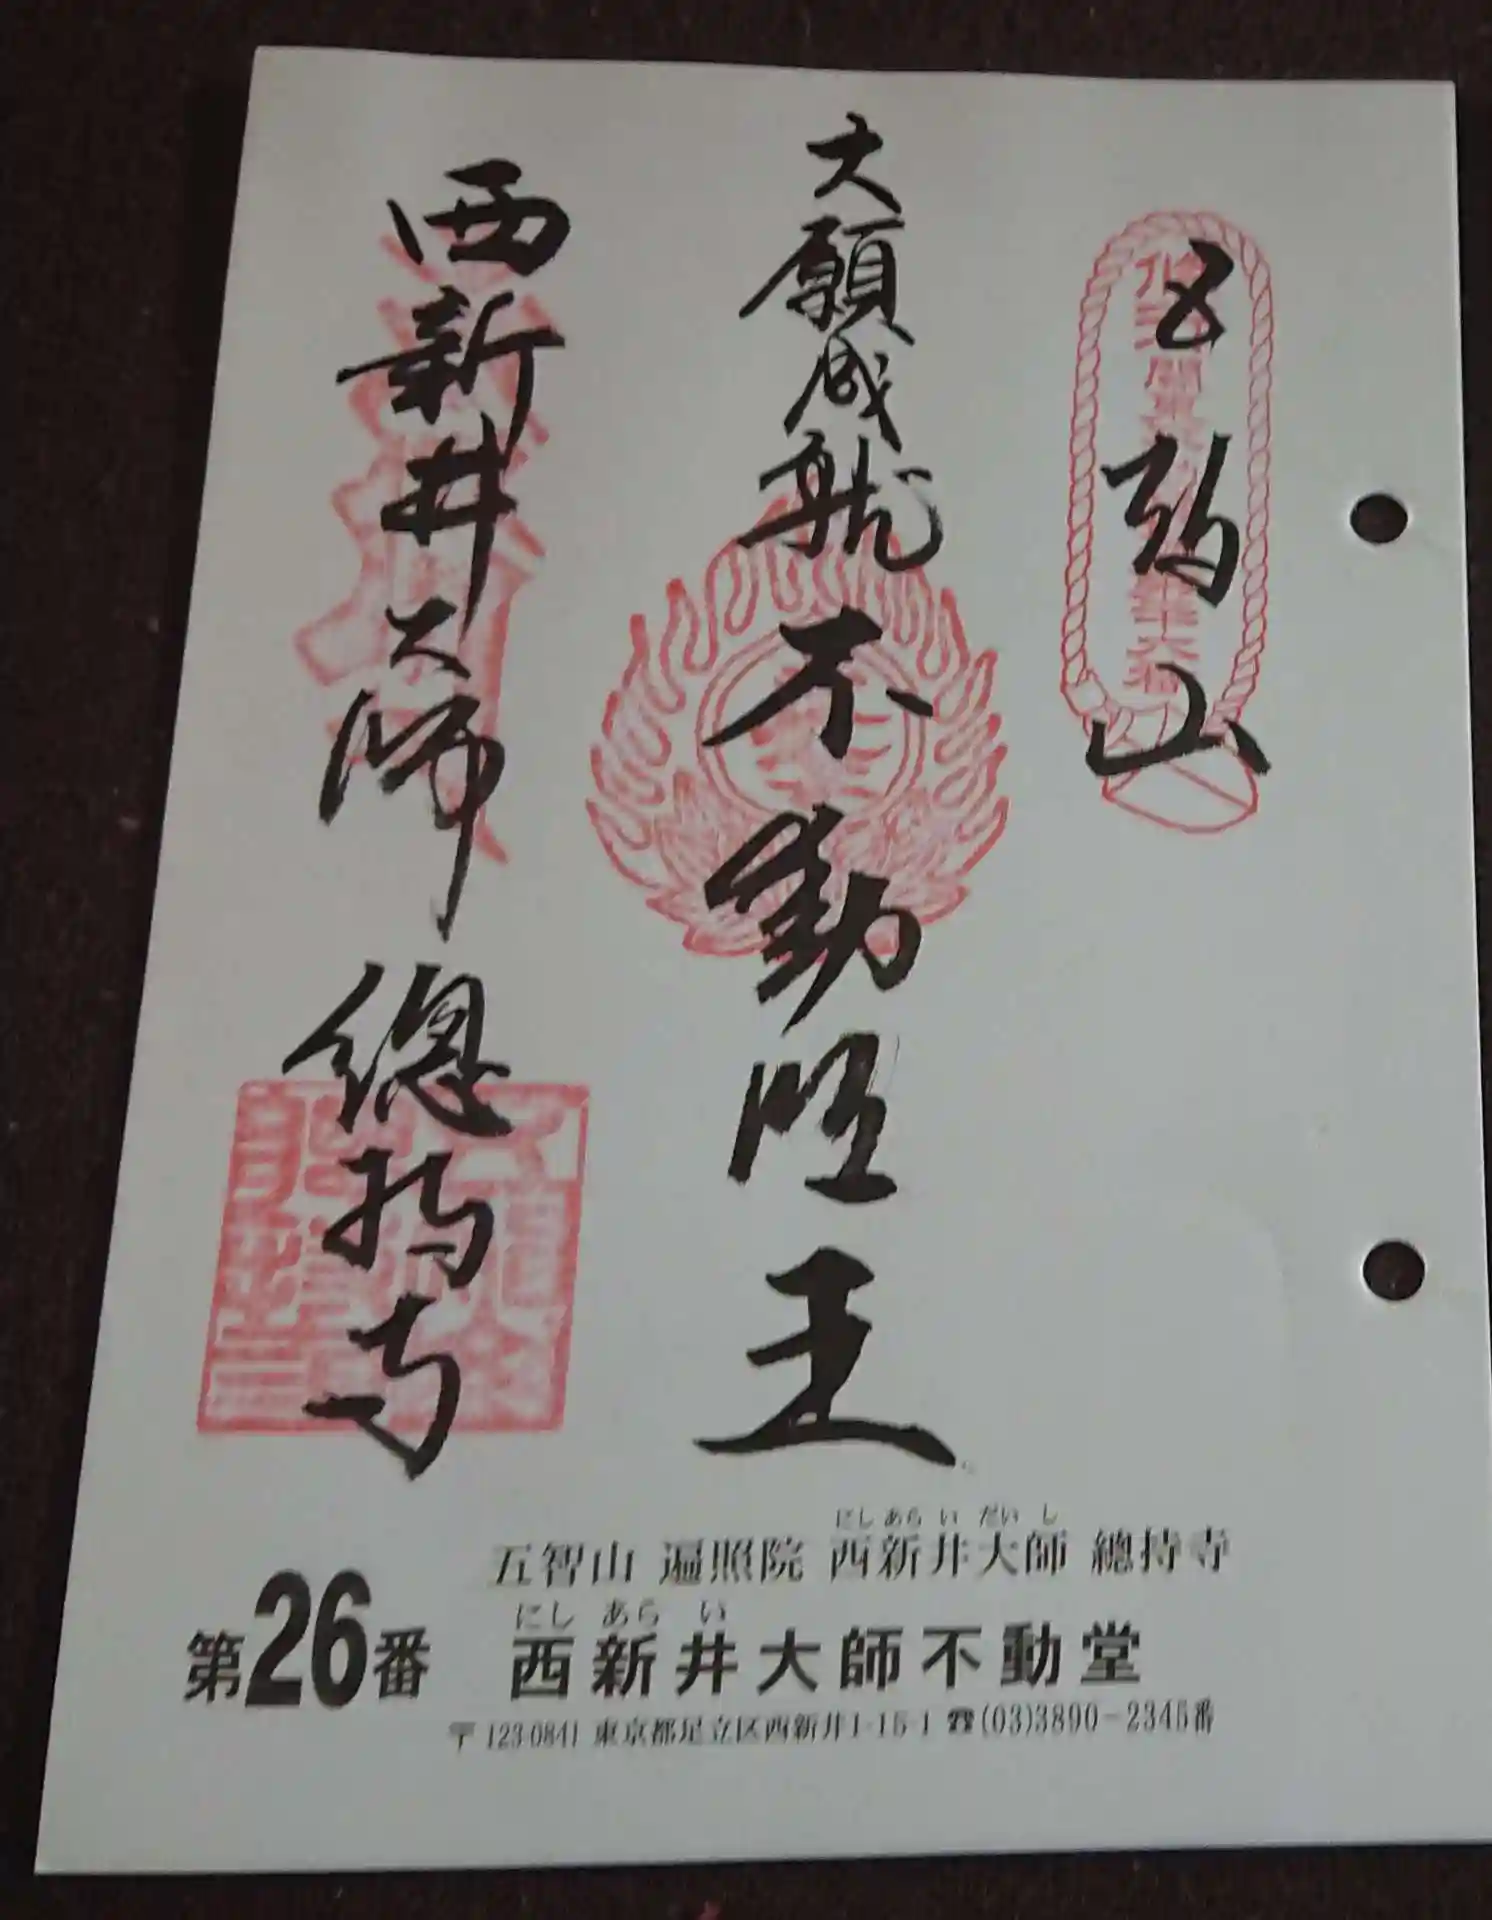 五智山
大願成就不動明王
西新井大師總持寺
にしあらいだいし
五智山 遍照院 西新井大師 總持寺
にしあらい
第26番 西新井大師不動堂
〒123-0841 東京都足立区西新井1-15-1 ☎(03)3890-2345番